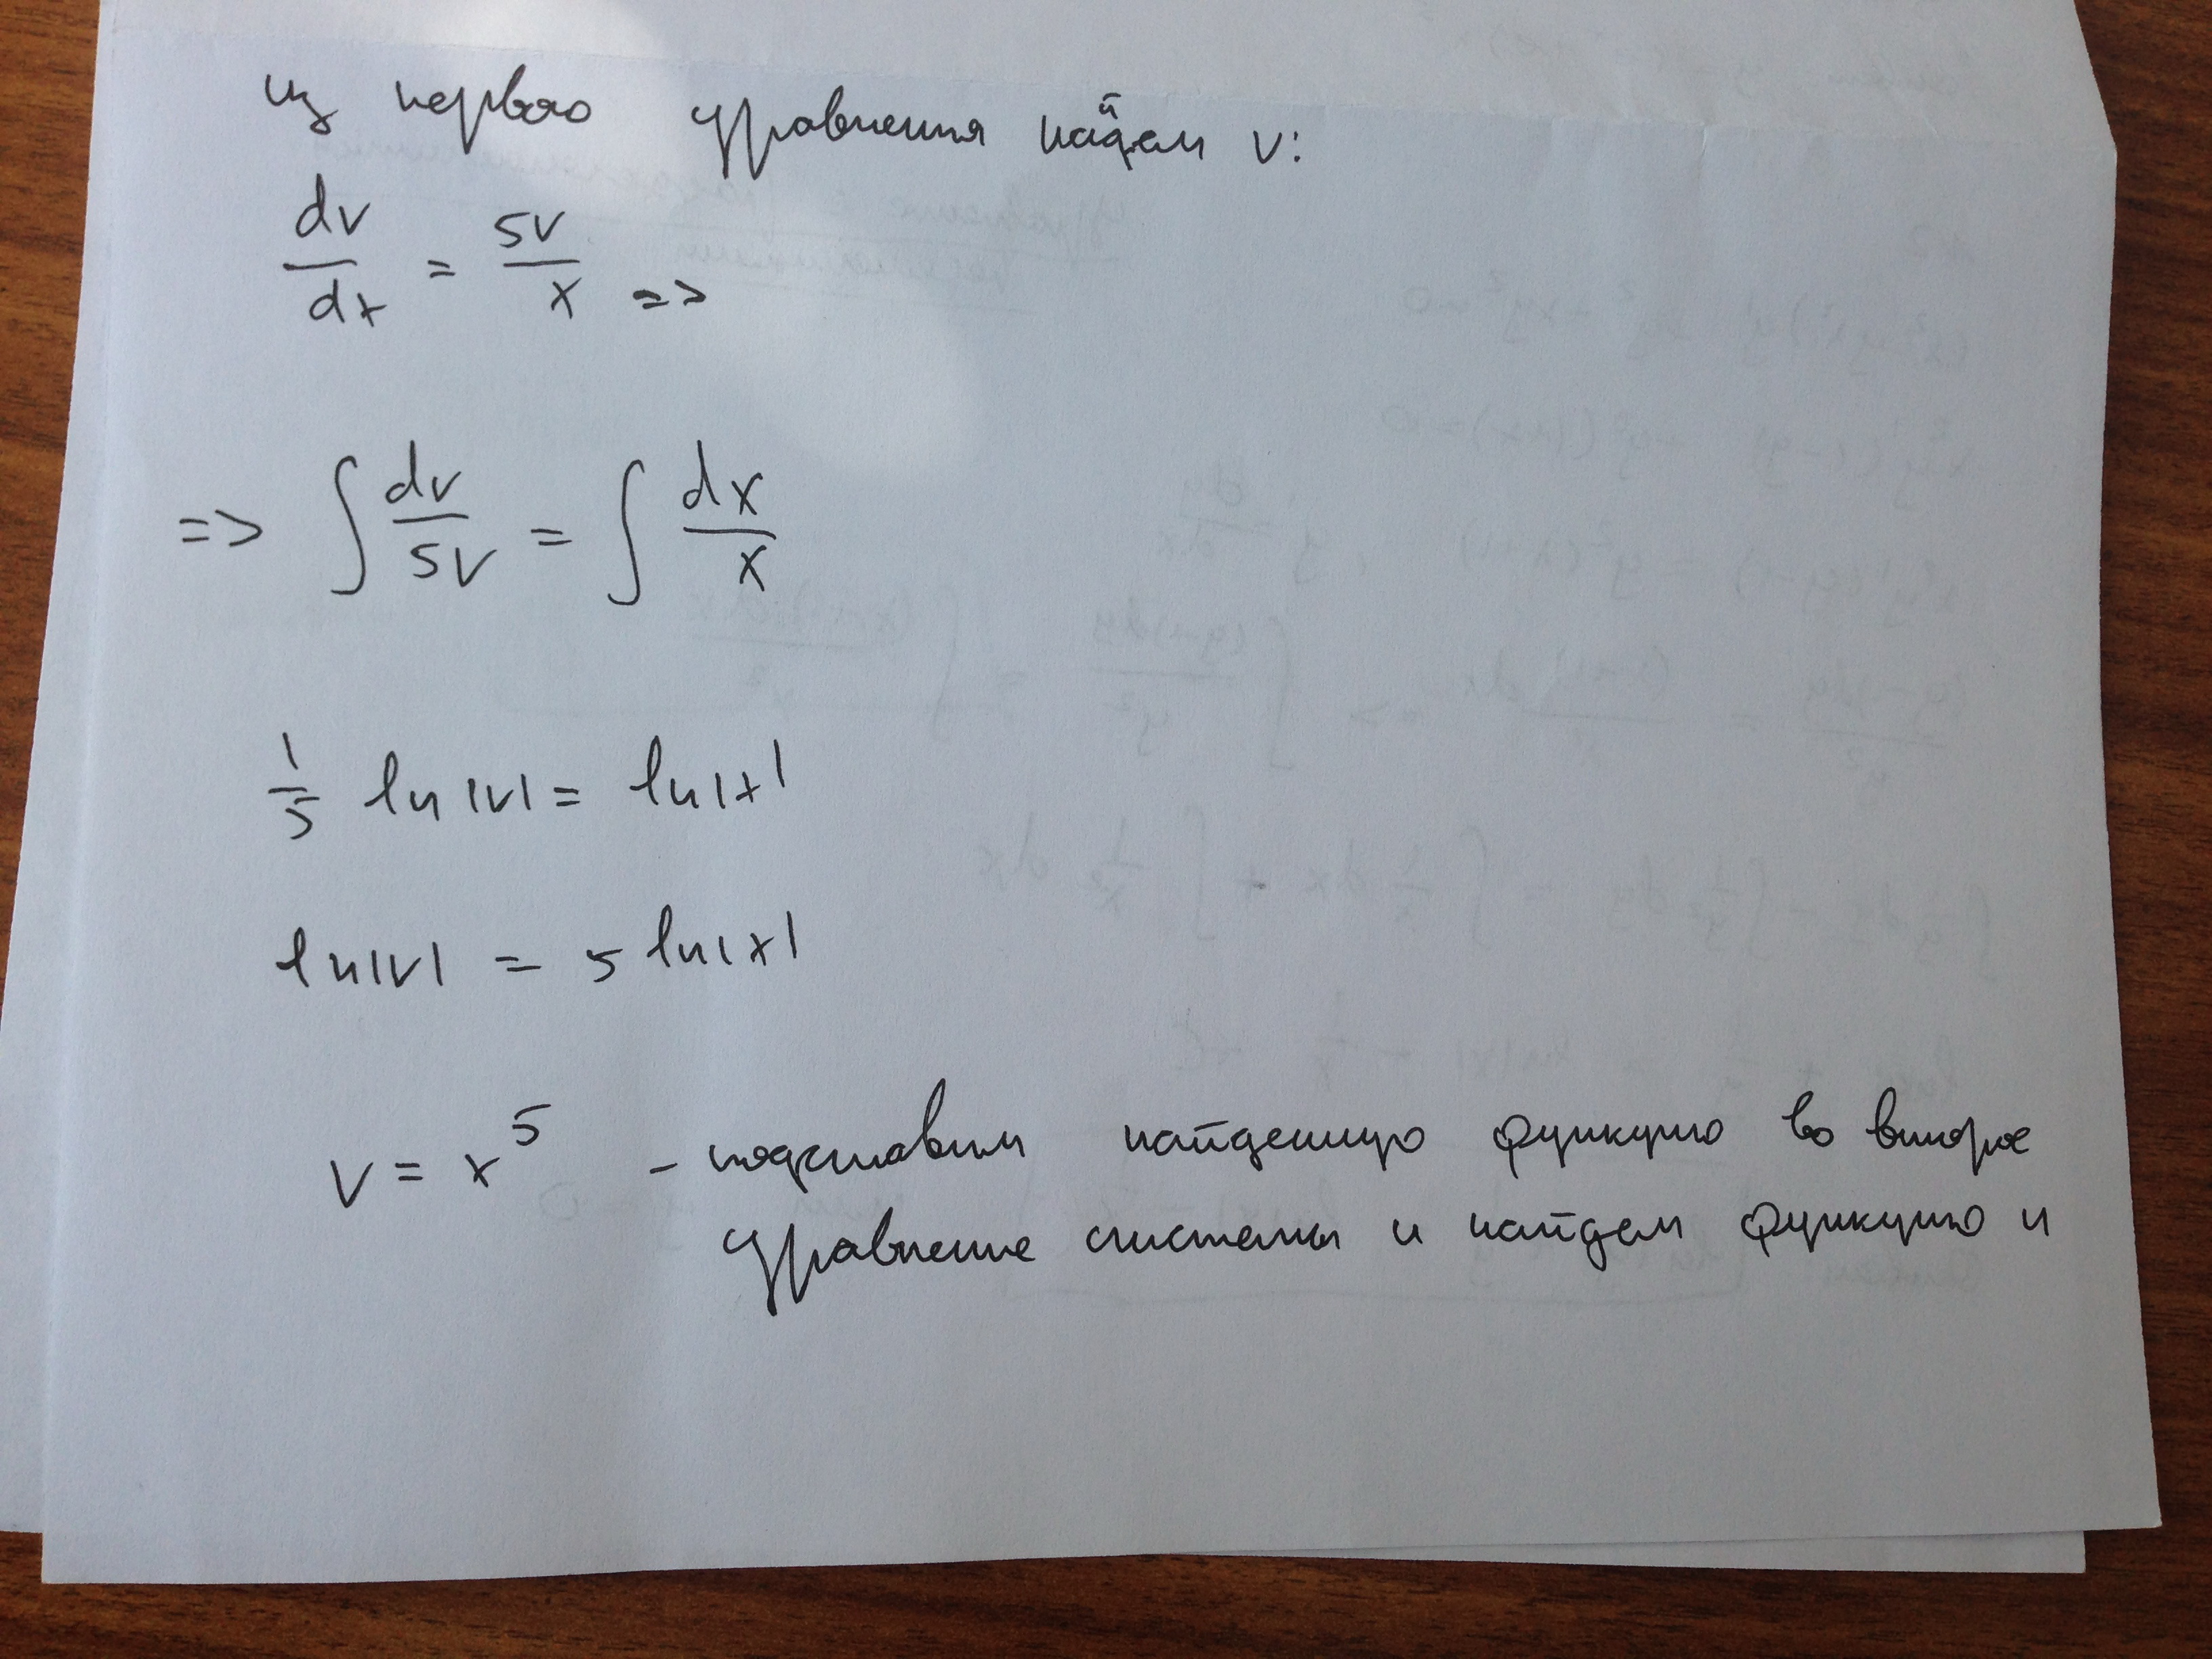 из первого уравнения найдем v:
dv/dx = 5v/x =>
=> ∫ dv/5v = ∫ dx/x
1/5 ln|v| = ln|x|
ln|v| = 5 ln|x|
v = x^5 - подставим найденную функцию во второе
уравнение системы и найдем функцию u